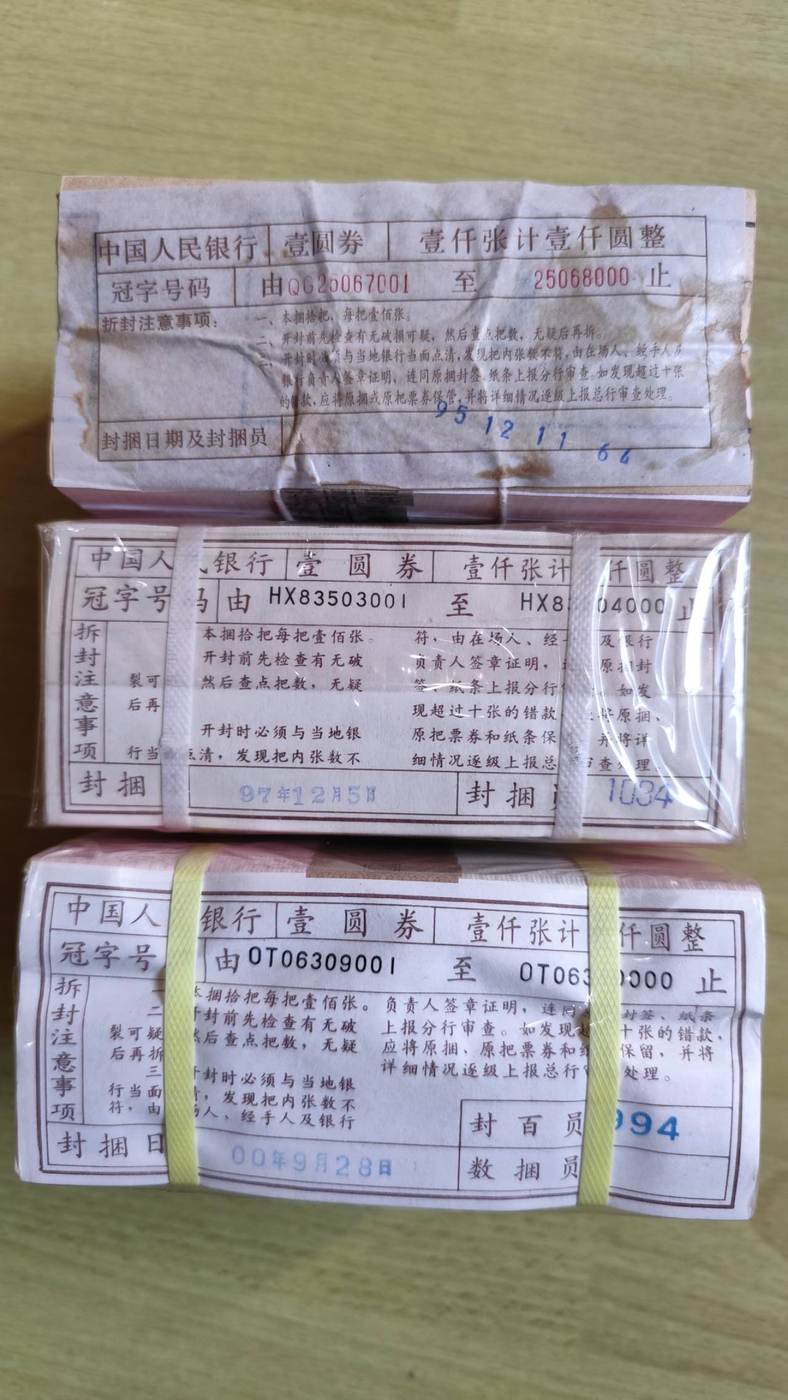 中国人民银行 壹圆券 壹仟张计壹仟圆整
冠字号码 由QG25067001 至 25068000 止
折封注意事项：
一、本捆拾把，每把壹佰张。
二、开封前先检查有无破损可疑，然后查点把数，无疑后再拆。
三、开封时必须与当地银行当面点清，发现把内张数不符，由在场人、经手人及
银行负责人签章证明，连同原捆封签、纸条上报分行审查。如发现超过十张
的错款，应将原捆或原把票券保管，并将详细情况逐级上报总行审查处理。
封捆日期及封捆员
95 12 11 64
中国人民银行 壹圆券 壹仟张计 仟圆整
冠字号码 由 HX83503001 至 HX8 04000 止
拆封注意事项
本捆拾把每把壹佰张。
开封前先检查有无破
裂可 然后查点把数，无疑
后再
开封时必须与当地银
行当 点清，发现把内张数不
符，由在场人、经 及银行
负责人签章证明， 原捆封
签、纸条上报分行 如发
现超过十张的错款 将原捆、
原把票券和纸条保 并将详
细情况逐级上报总 审查处理
封捆 97年12月5日 封捆 1034
中国人 银行 壹圆券 壹仟张计 仟圆整
冠字号 由 OT06309001 至 OT063 0000 止
拆封注意事项
本捆拾把每把壹佰张。
二 开封前先检查有无破
裂可疑 然后查点把数，无疑
后再拆
三 开封时必须与当地银
行当面 ，发现把内张数不
符，由 场人、经手人及银行
负责人签章证明，连同 封签、纸条
上报分行审查。如发现超 十张的错款，
应将原捆、原把票券和纸 保留，并将
详细情况逐级上报总行 处理。
封捆日 00年9月28日
封百员 994
数捆员